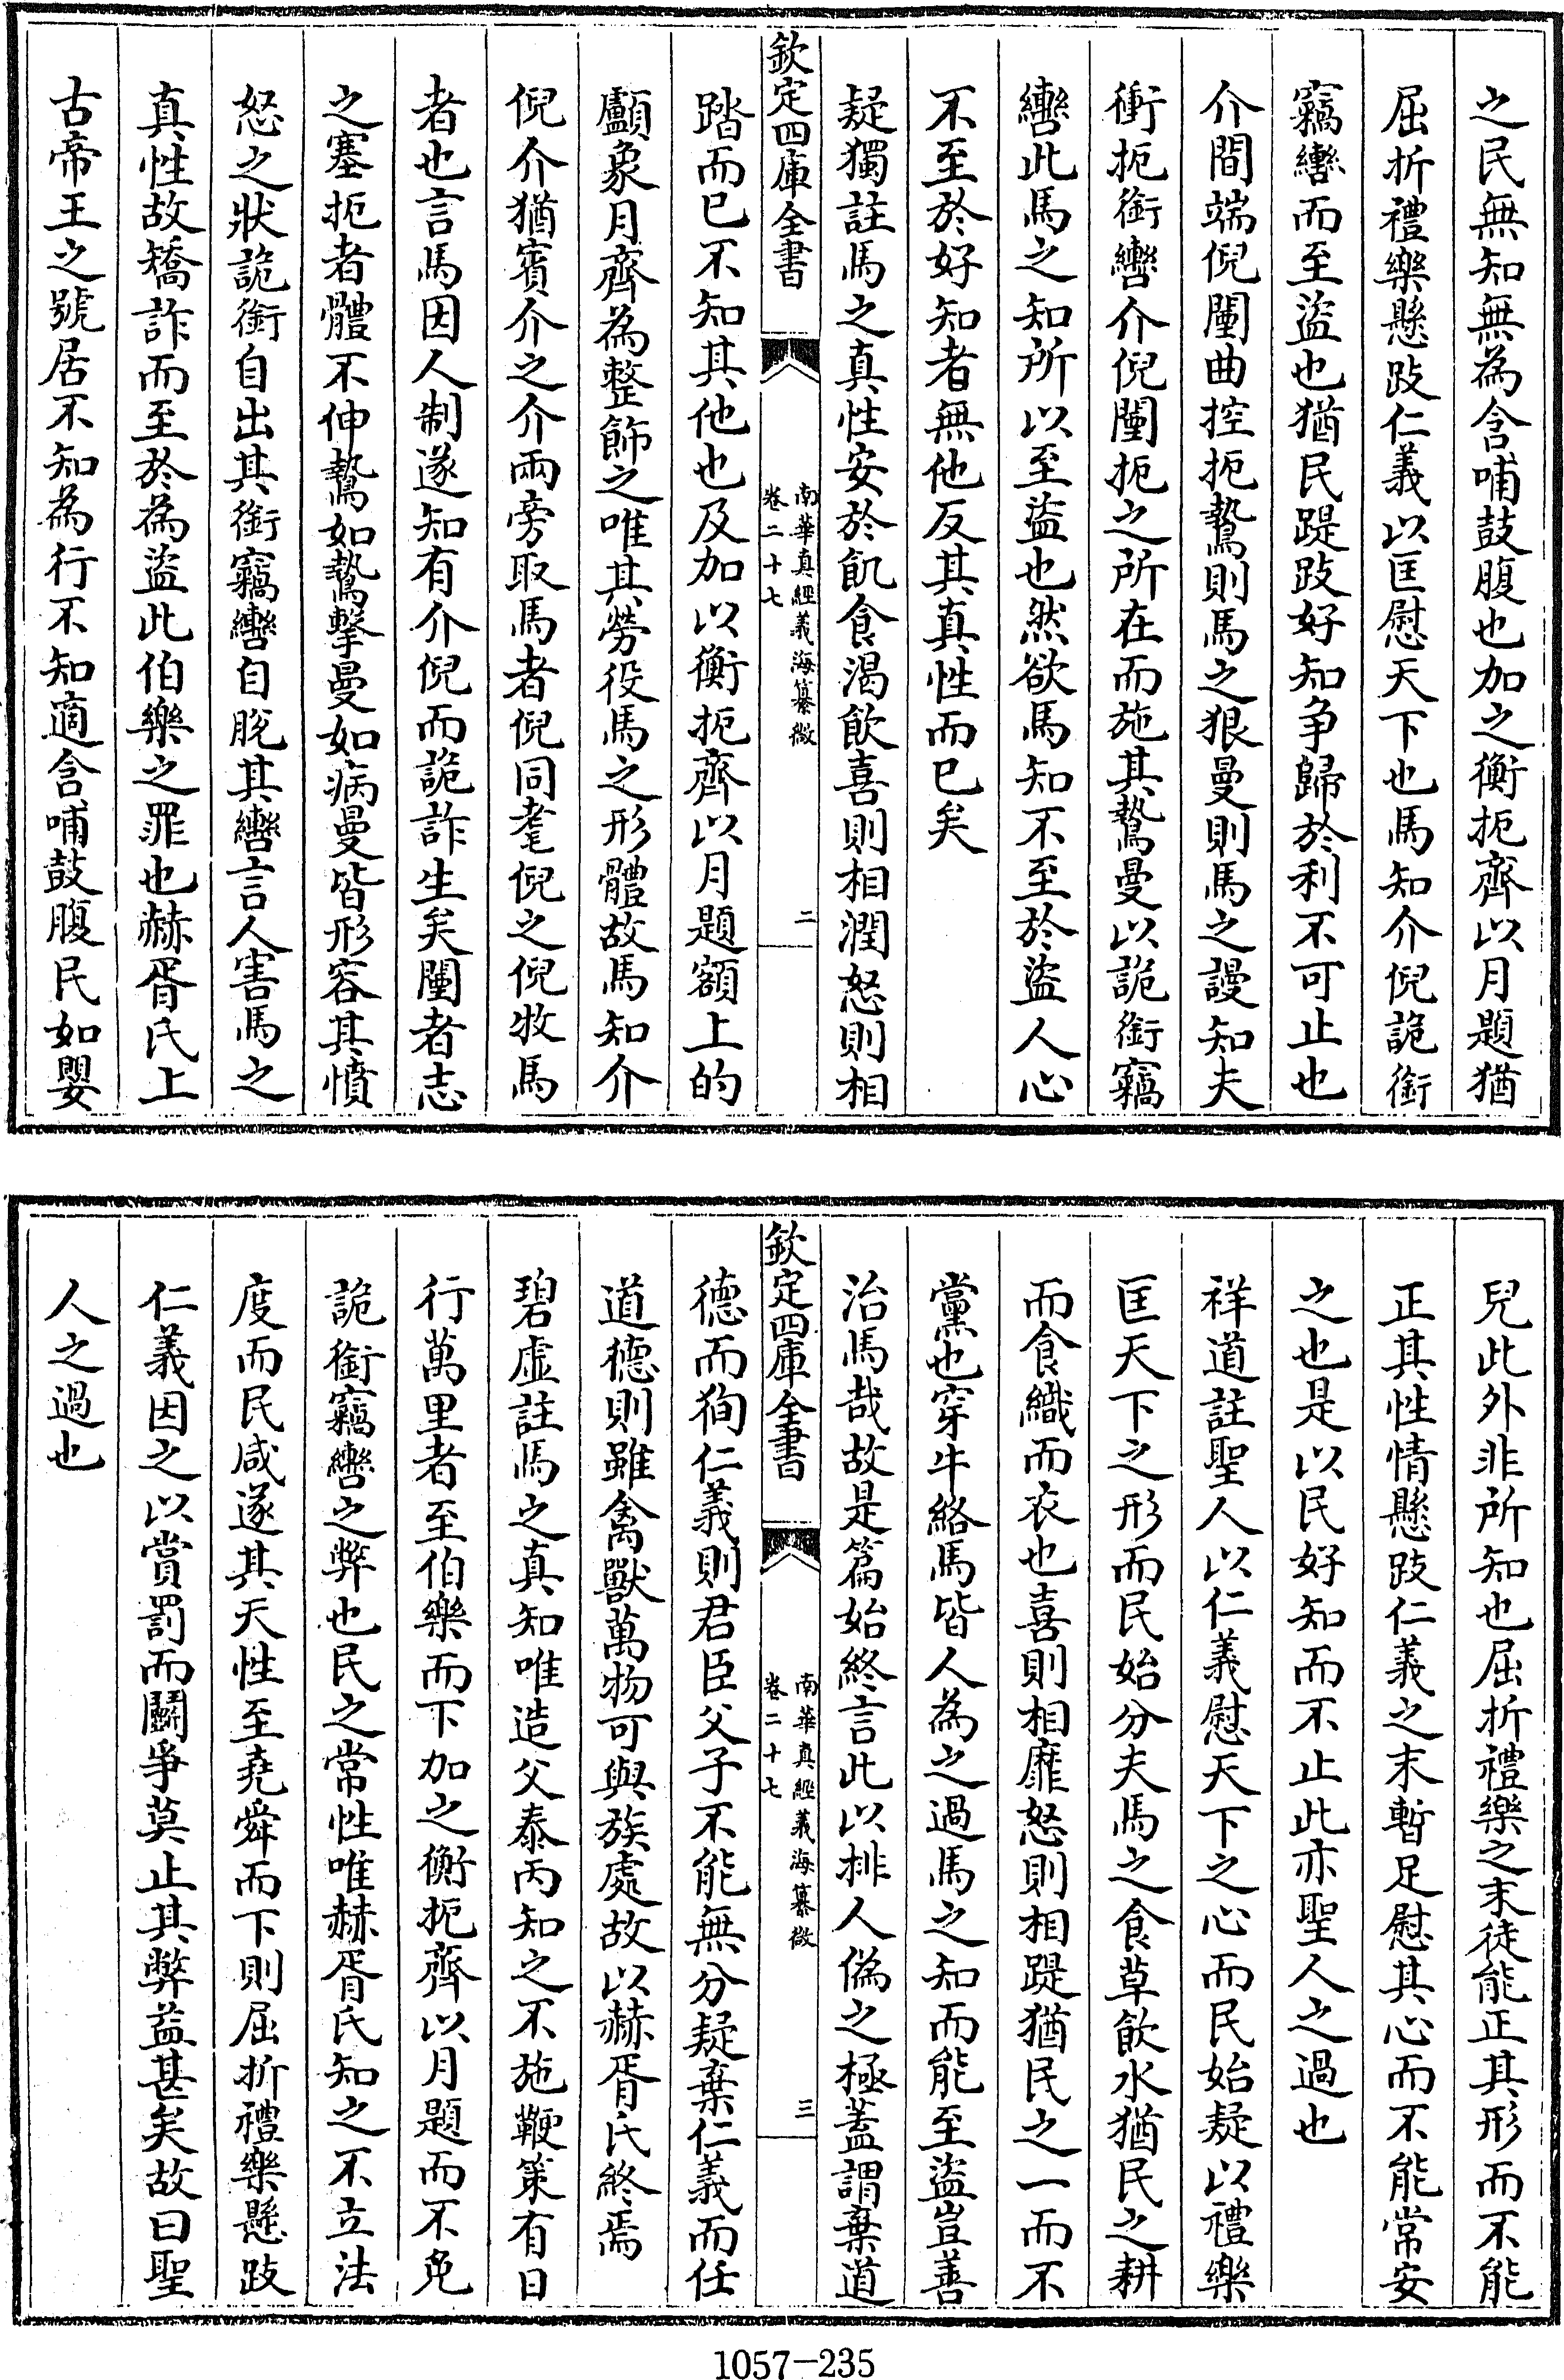 之民無知無為含哺鼓腹也加之衡扼齊以月題猶
屈折禮樂懸跂仁義以匡慰天下也馬知介倪詭銜
竊轡而至盜也猶民踶跂好知争歸於利不可止也
介間端倪闉曲控扼鷙則馬之狠曼則馬之謾知夫
衝扼銜轡介倪闉扼之所在而施其鷙曼以詭銜竊
轡此馬之知所以至盜也然欲馬知不至於盜人心
不至於好知者無他反其真性而已矣
疑獨註馬之真性安於飢食渴飲喜則相潤怒則相
欽定四庫全書
南華真經義海纂微
卷二十七
二
踏而已不知其他也及加以衡扼齊以月題額上的
顱象月齊為整飾之唯其勞役馬之形體故馬知介
倪介猶賓介之介兩旁取馬者倪同耄倪之倪牧馬
者也言馬因人制遂知有介倪而詭詐生矣闉者志
之塞扼者體不伸鷙如鷙擊曼如病曼皆形容其憤
怒之狀詭銜自出其銜竊轡自脫其轡言人害馬之
真性故矯詐而至於為盜此伯樂之罪也赫胥氏上
古帝王之號居不知為行不知適含哺鼓腹民如嬰
兒此外非所知也屈折禮樂之末徒能正其形而不能
正其性情懸跂仁義之末暫足慰其心而不能常安
之也是以民好知而不止此亦聖人之過也
祥道註聖人以仁義慰天下之心而民始疑以禮樂
匡天下之形而民始分夫馬之食草飲水猶民之耕
而食織而衣也喜則相靡怒則相踶猶民之一而不
黨也穿牛絡馬皆人為之過馬之知而能至盜豈善
治馬哉故是篇始終言此以排人偽之極蓋謂棄道
欽定四庫全書
南華真經義海纂微
卷二十七
三
德而狥仁義則君臣父子不能無分疑棄仁義而任
道德則雖禽獸萬物可與族處故以赫胥氏終焉
碧虛註馬之真知唯造父泰丙知之不施鞭策有日
行萬里者至伯樂而下加之衡扼齊以月題而不免
詭銜竊轡之弊也民之常性唯赫胥氏知之不立法
度而民咸遂其天性至堯舜而下則屈折禮樂懸跂
仁義因之以賞罰而鬭爭莫止其弊益甚矣故曰聖
人之過也
1057-235